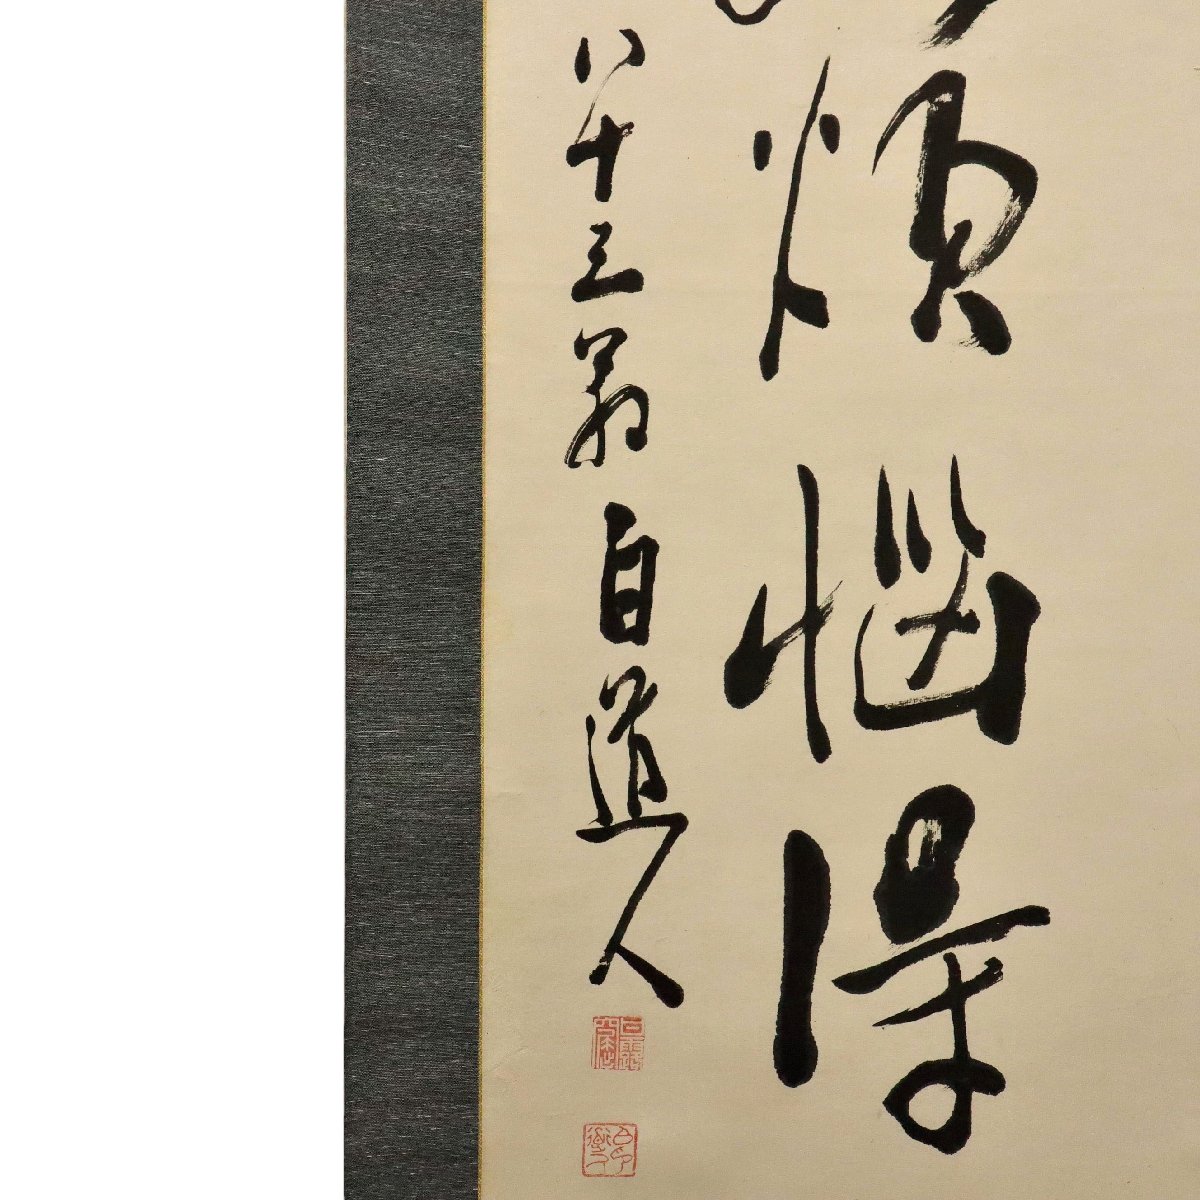 煩悩得
八十三翁白道人